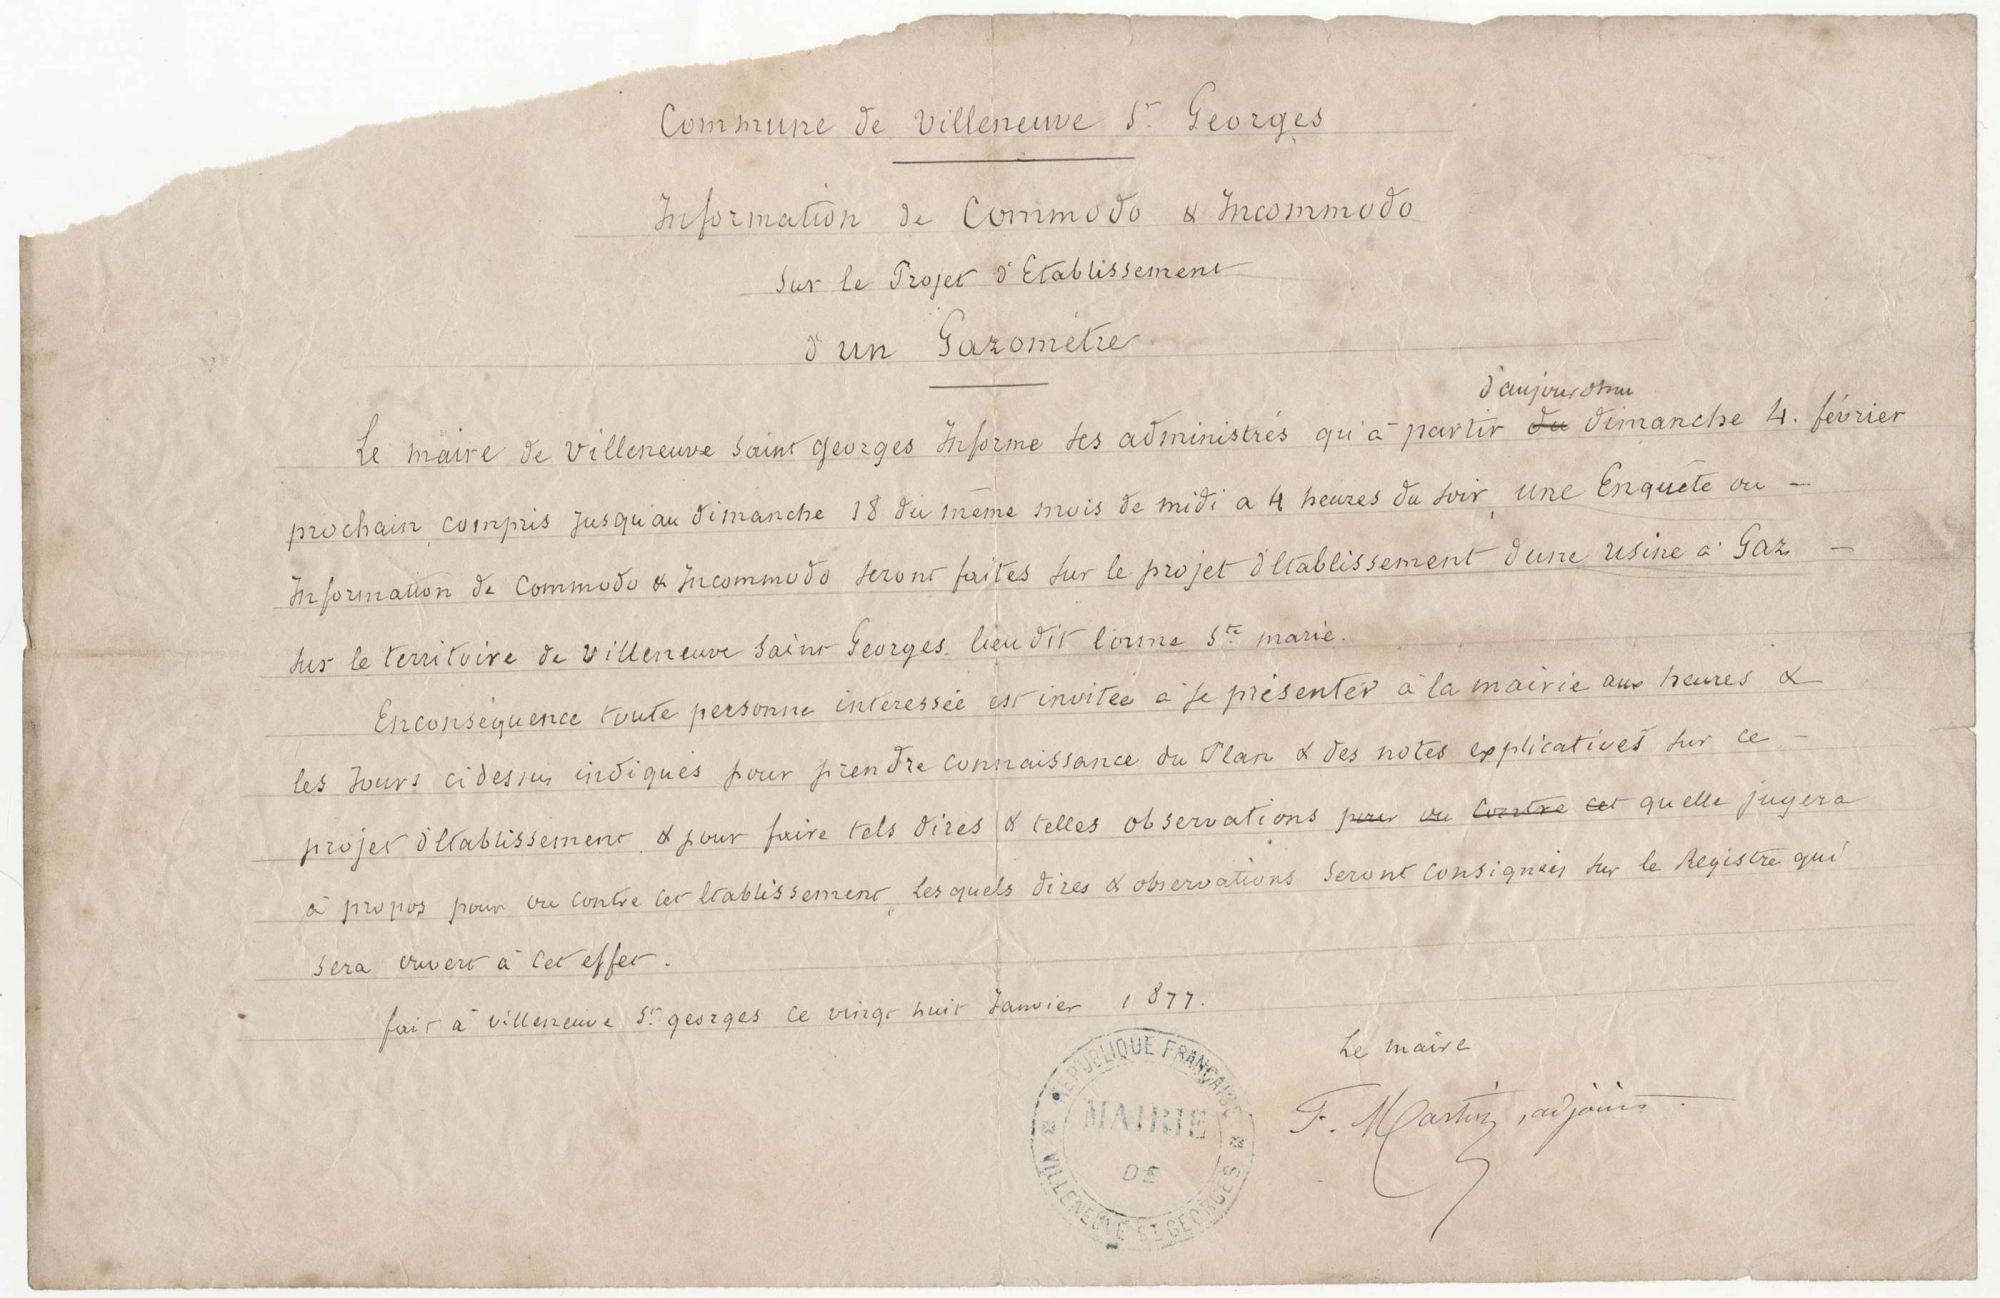 Commune de Villeneuve St Georges
Information de Commodo & Incommodo
sur le Projet d'Etablissement
d'un Gazomètre
d'aujourdhui
Le maire de Villeneuve saint georges Informe ses administrés qu'à partir du dimanche 4. février
prochain, compris jusqu'au dimanche 18 du même mois de midi a 4 heures du soir, une Enquête ou –
Information de Commodo & Incommodo seront faites sur le projet d'Etablissement d'une usine à Gaz –
sur le territoire de Villeneuve saint Georges. lieu dit l'orme Ste marie.
Enconséquence toute personne intéressée est invitée à se présenter à la mairie aux heures &
les jours cidessus indiqués pour prendre connaissance du Plan & des notes explicatives sur ce –
projet d'Etablissement, & pour faire tels dires & telles observations pour ou contre cet quelle jugera
à propos pour ou contre cet Etablissement, lesquels dires & observations seront consignées sur le Registre qui
sera ouvert à cet effet.
fait à Villeneuve St georges ce vingt huit Janvier 1877.
Le maire
F. Martin, adjoint.
REPUBLIQUE FRANÇAISE
MAIRIE
DE
VILLENEUVE ST GEORGES